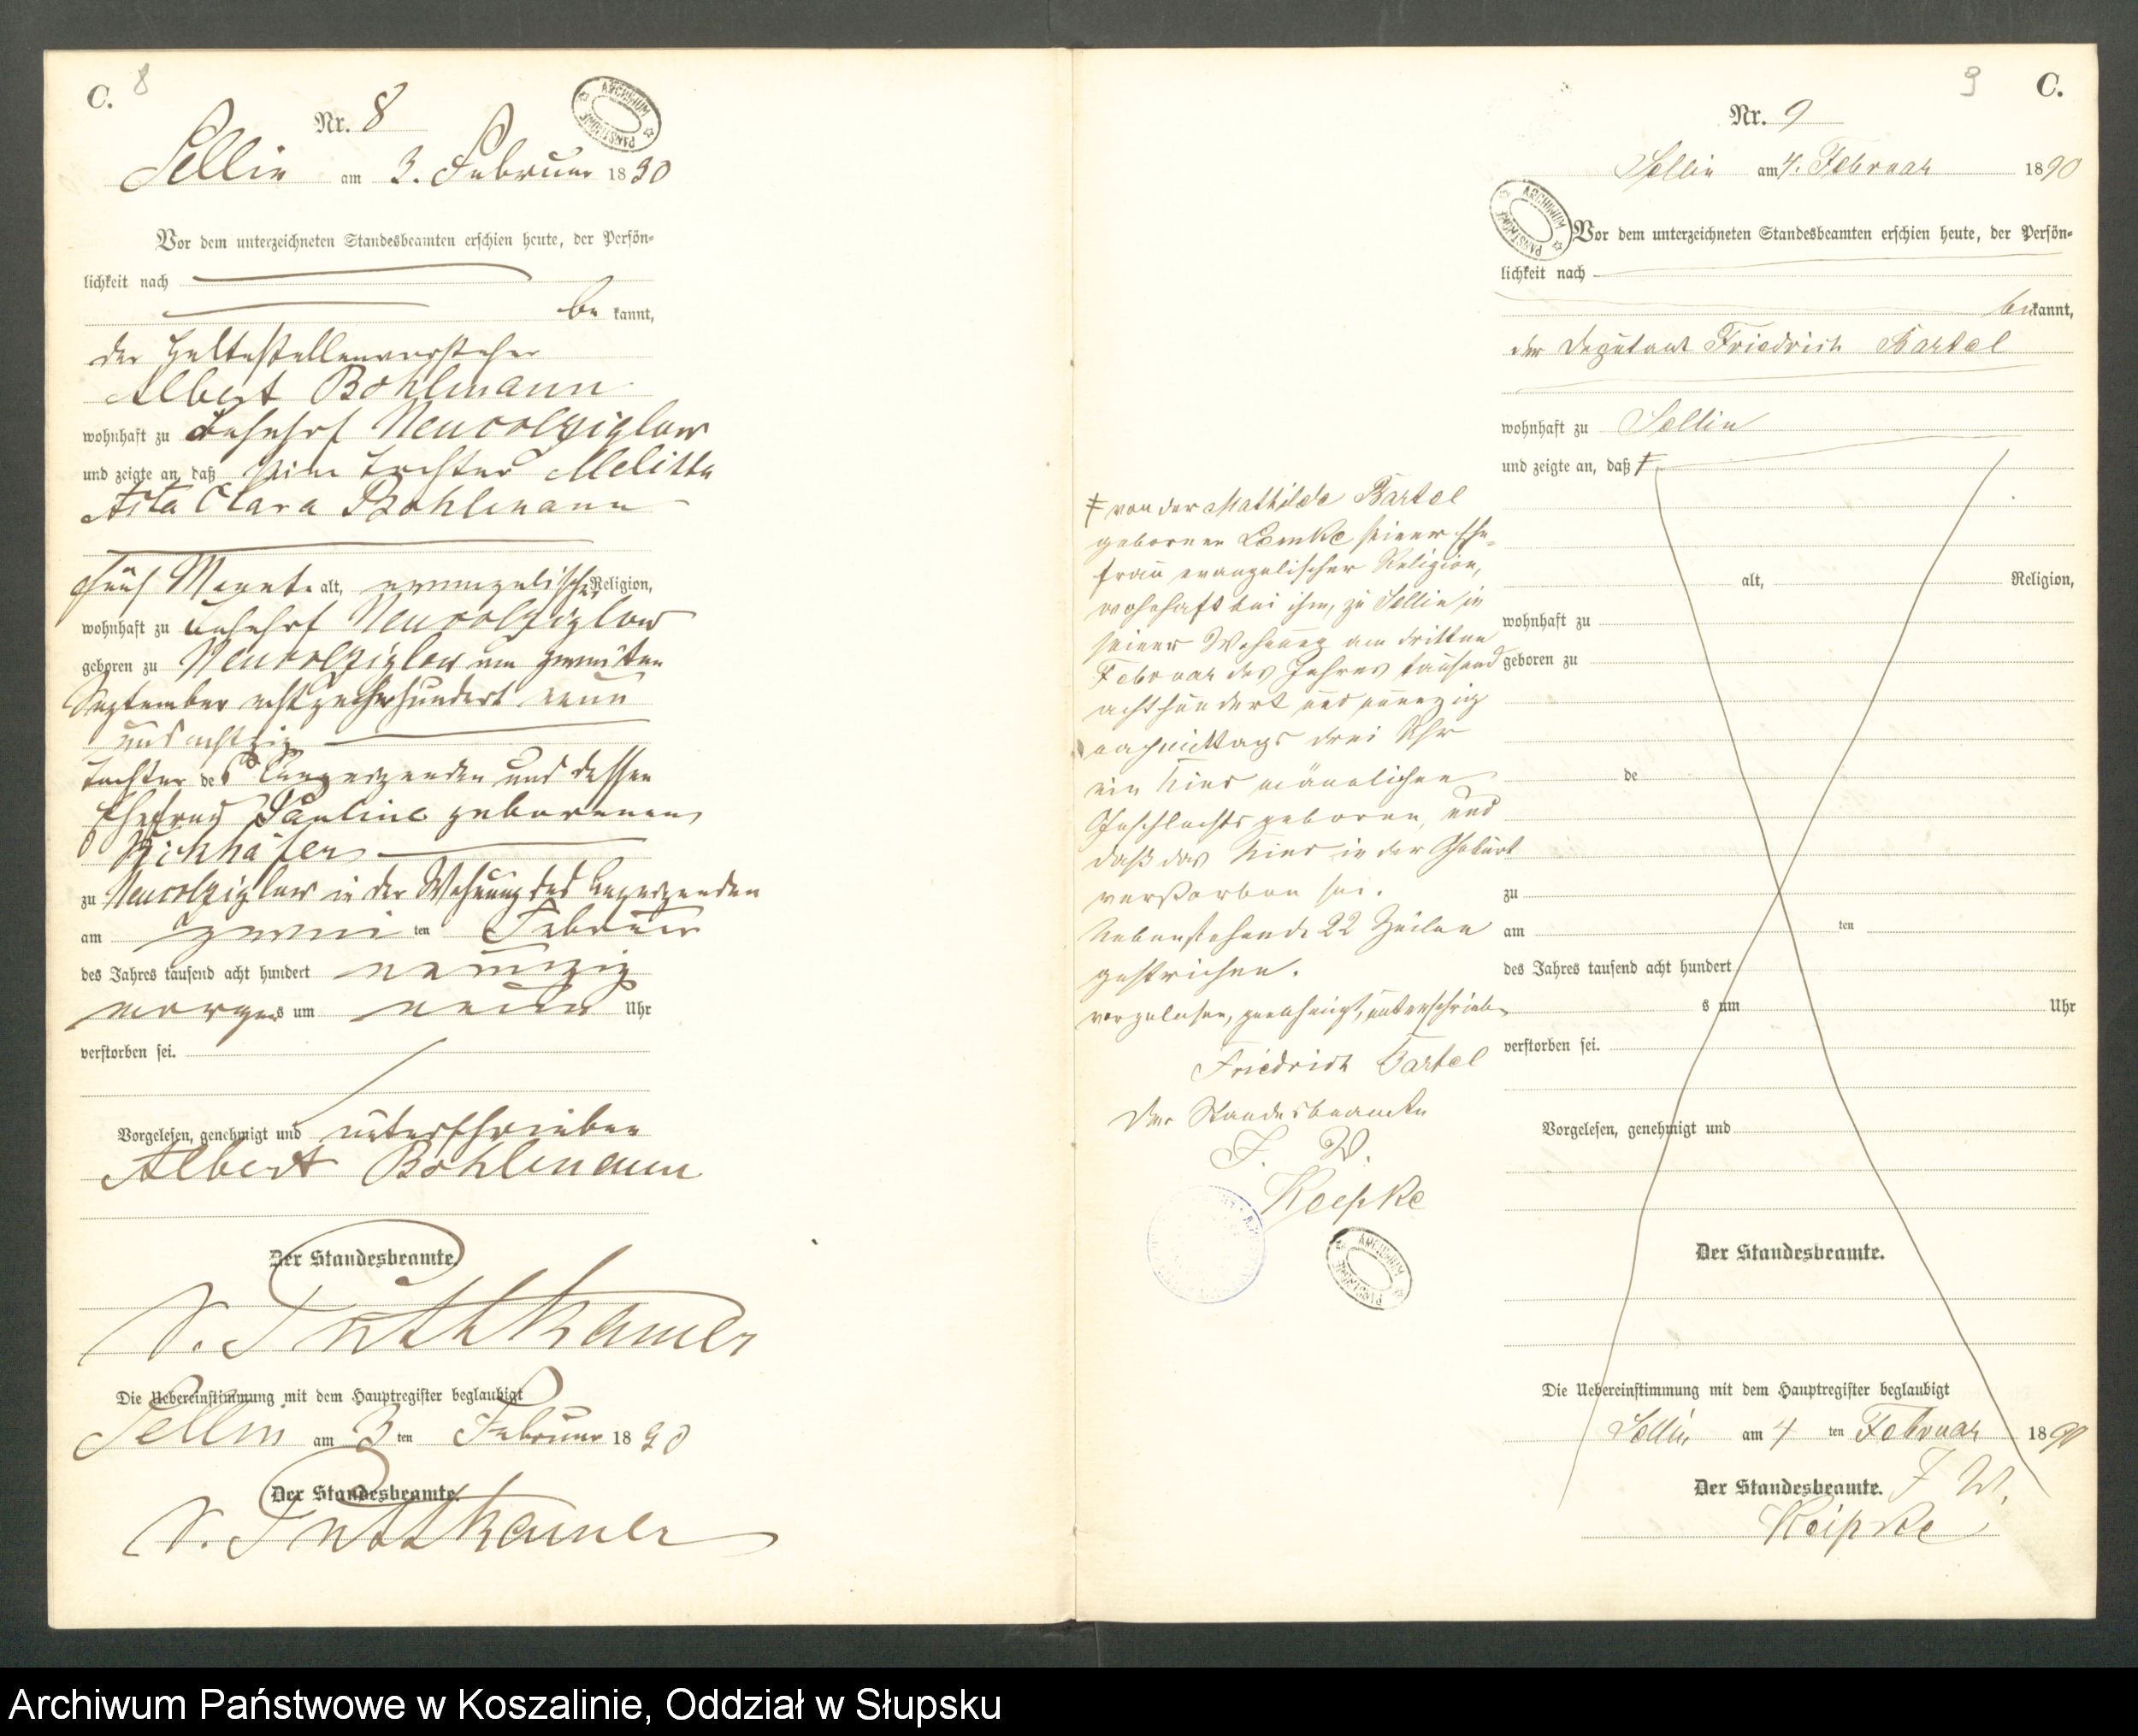 C. 8
Nr. 8
ARCHIWUM PAŃSTWOWE
Sellin am 3. Februar 1890
Vor dem unterzeichneten Standesbeamten erschien heute, der Persön-
lichkeit nach
be kannt,
der Haltestellenvorsteher
Albert Bohlmann
wohnhaft zu Bahnhof Neucolziglow
und zeigte an, daß seine Tochter Melitta
Clara Bohlmann
fünf Monate alt, evangelischer Religion,
wohnhaft zu Bahnhof Neucolziglow
geboren zu Neucolziglow am zweiten
September achtzehnhundert neun
und achtzig
Tochter des Anzeigenden und dessen
Ehefrau Pauline geborenen
zu Neucolziglow in der Wohnung des Anzeigenden
am zwei ten Februar
des Jahres tausend acht hundert neunzig
morgens um neun Uhr
verstorben sei.
Vorgelesen, genehmigt und unterschrieben
Albert Bohlmann
Der Standesbeamte.
v. Puttkamer
Die Uebereinstimmung mit dem Hauptregister beglaubigt
Sellin am 3 ten Februar 1890
Der Standesbeamte.
v. Puttkamer
9 C.
Nr. 9
Sellin am 4. Februar 1890
ARCHIWUM PAŃSTWOWE
Vor dem unterzeichneten Standesbeamten erschien heute, der Persön-
lichkeit nach
bekannt,
der Deputant Friedrich Bartel
wohnhaft zu Sellin
und zeigte an, daß ‡
‡ von der Mathilde Bartel
geborenen Lemke seiner Ehe-
frau evangelischer Religion,
wohnhaft bei ihm, zu Sellin in
seiner Wohnung am dritten
Februar des Jahres tausend
achthundert und neunzig
nachmittags drei Uhr
ein Kind männlichen
Geschlechts geboren, und
daß das Kind in der Geburt
verstorben sei.
Nebenstehende 22 Zeilen
gestrichen.
vorgelesen, genehmigt, unterschrieben
Friedrich Bartel
Der Standesbeamte
J. V.
Koepke
ARCHIWUM PAŃSTWOWE
alt, Religion,
wohnhaft zu
geboren zu
de
zu
am ten
des Jahres tausend acht hundert
s um Uhr
verstorben sei.
Vorgelesen, genehmigt und
Der Standesbeamte.
Die Uebereinstimmung mit dem Hauptregister beglaubigt
Sellin am 4 ten Februar 1890
Der Standesbeamte. J. V.
Koepke
Archiwum Państwowe w Koszalinie, Oddział w Słupsku